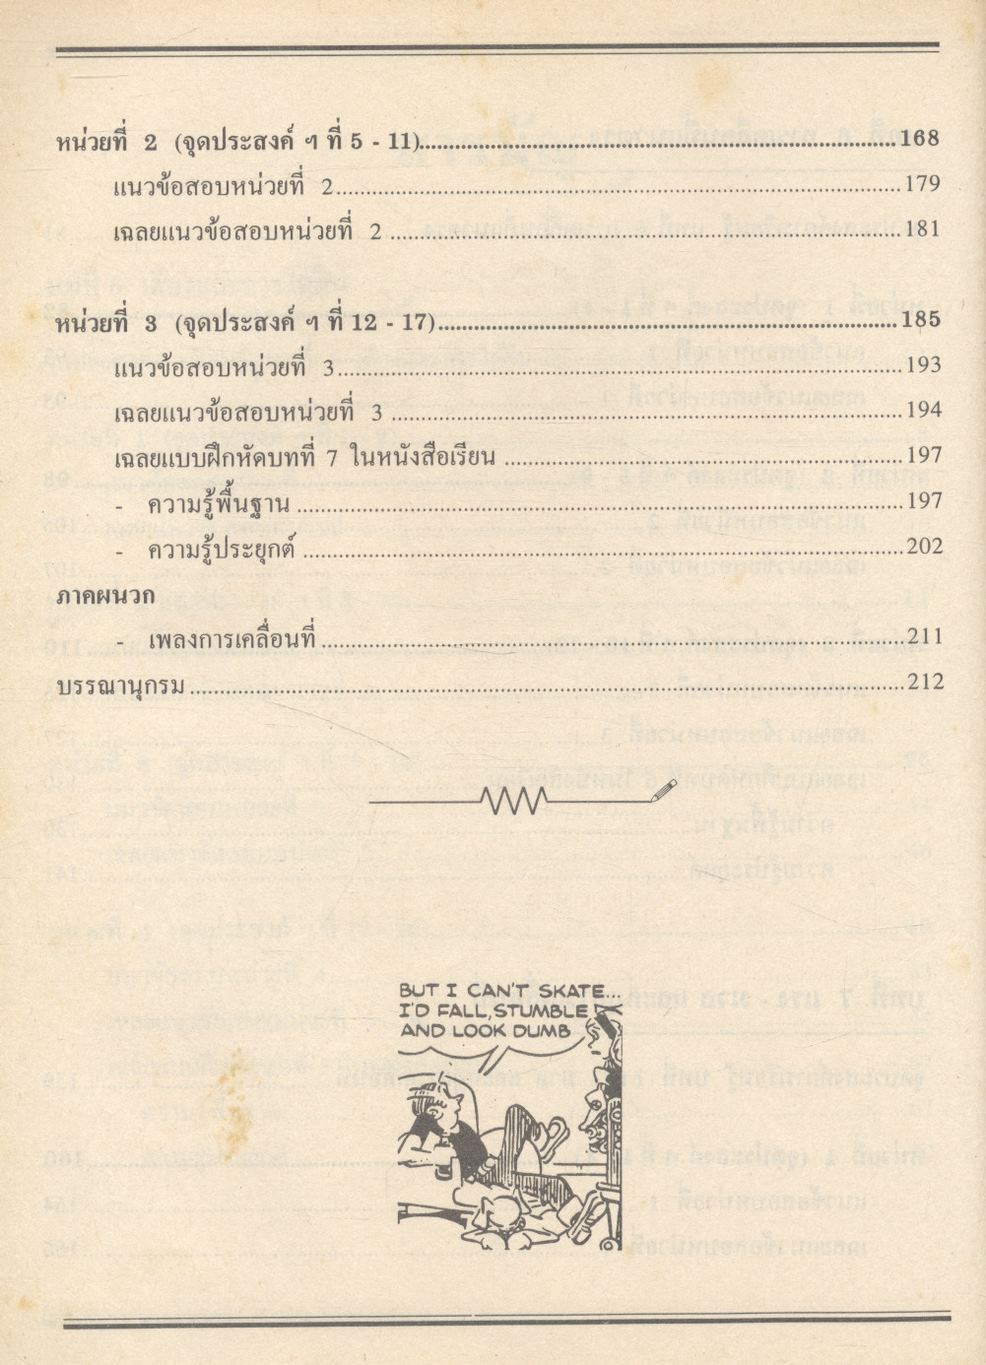 หน่วยที่ 2 (จุดประสงค์ ฯ ที่ 5 - 11)........168
แนวข้อสอบหน่วยที่ 2........179
เฉลยแนวข้อสอบหน่วยที่ 2........181
หน่วยที่ 3 (จุดประสงค์ ฯ ที่ 12 - 17)........185
แนวข้อสอบหน่วยที่ 3........193
เฉลยแนวข้อสอบหน่วยที่ 3........194
เฉลยแบบฝึกหัดบทที่ 7 ในหนังสือเรียน........197
- ความรู้พื้นฐาน........197
- ความรู้ประยุกต์........202
ภาคผนวก
- เพลงการเคลื่อนที่........211
บรรณานุกรม........212
BUT I CAN'T SKATE...
I'D FALL, STUMBLE
AND LOOK DUMB